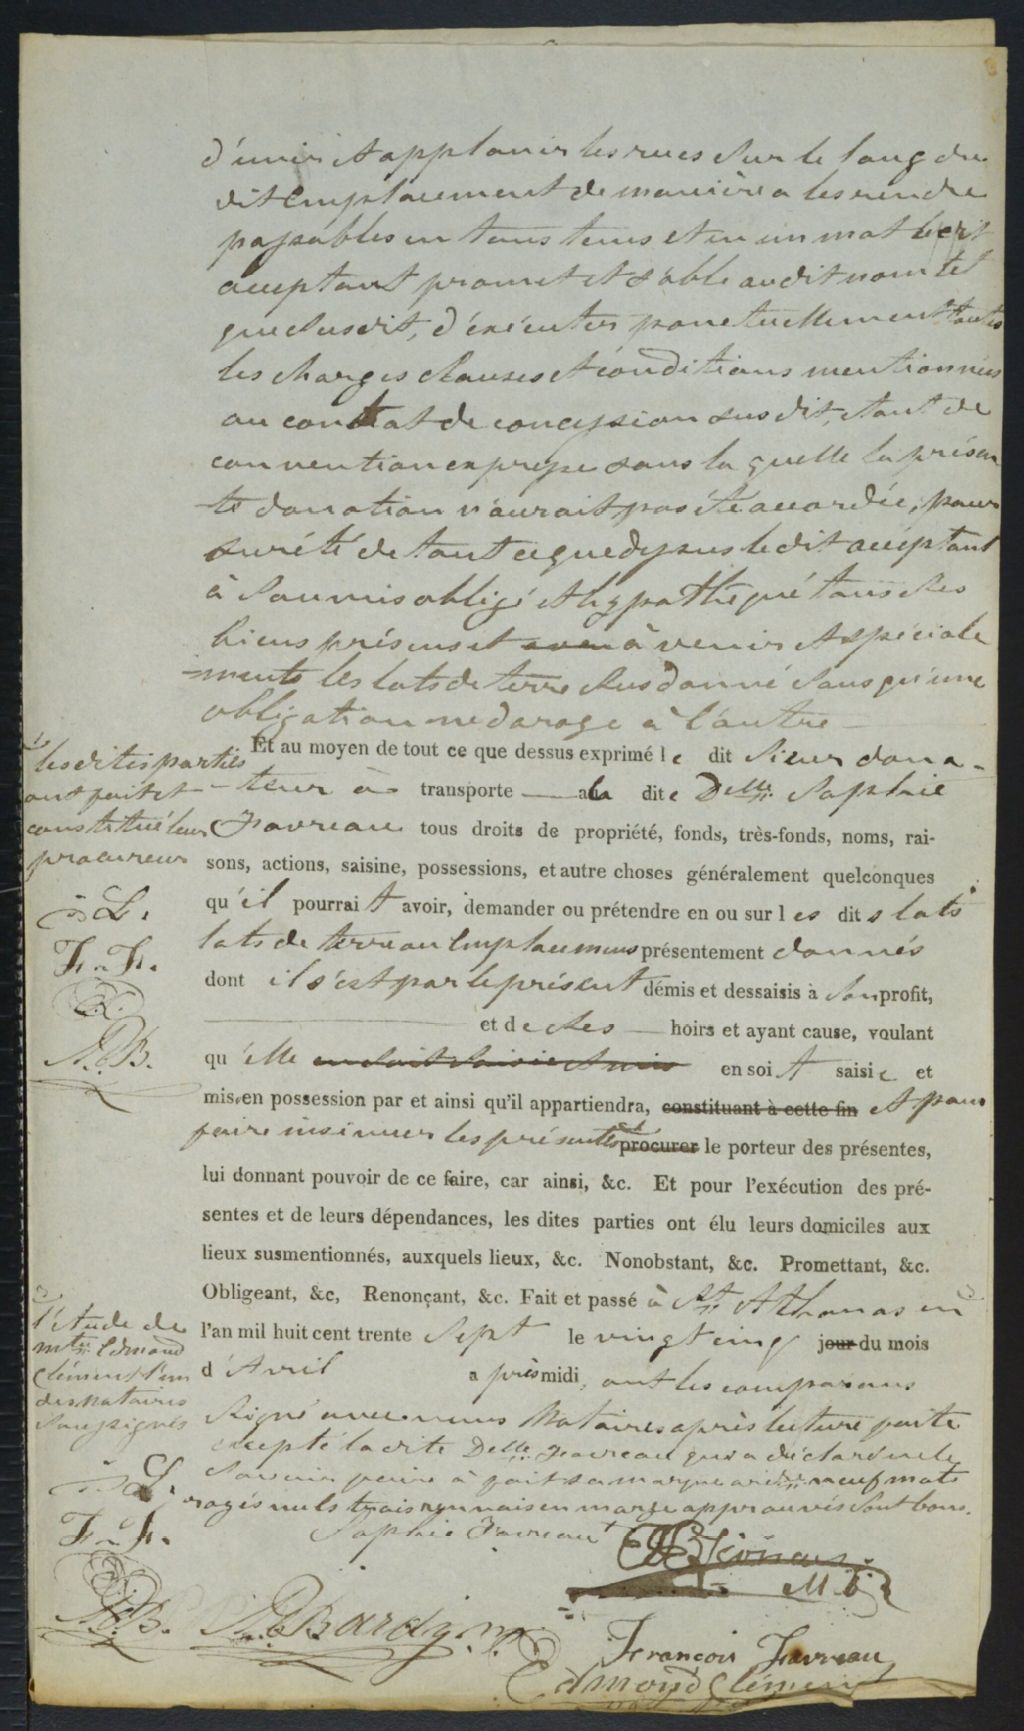 d'unir et applanir les rues sur le long du
dit Emplacement de manière a les rendre
passables en tous tems et en un mot le dit
acceptant promet et s'oblige audit nom tel
que susdit, d'exécuter ponctuellement toutes
les charges clauses et conditions mentionnées
au contrat de concession susdit, étant de
convention expresse sans laquelle la présen
te donation n'aurait pas été accordée; pour
sureté de tout ce que dessus le dit acceptant
à soumis obligé et hypothéqué tous ses
biens présens et à venir et spéciale
-ments les lots de terre sus donné sans qu'une
obligation ne deroge à l'autre —
Et au moyen de tout ce que dessus exprimé le dit Sieur dona-
-teur à transporte — a la dite Delle. Sophie
Favreau tous droits de propriété, fonds, très-fonds, noms, rai-
sons, actions, saisine, possessions, et autre choses généralement quelconques
qu'il pourrait avoir, demander ou prétendre en ou sur les dits lots
lots de terre ou Emplacemens présentement donnés
dont il s'est par le présent démis et dessaisis à son profit,
— et de ses — hoirs et ayant cause, voulant
qu'elle en soit saisie et mis en soit saisie et
mis en possession par et ainsi qu'il appartiendra, constituant à cette fin et pour
faire insinuer les présentes procurer le porteur des présentes,
lui donnant pouvoir de ce faire, car ainsi, &c. Et pour l'exécution des pré-
sentes et de leurs dépendances, les dites parties ont élu leurs domiciles aux
lieux susmentionnés, auxquels lieux, &c. Nonobstant, &c. Promettant, &c.
Obligeant, &c, Renonçant, &c. Fait et passé à St. Athanas en
l'an mil huit cent trente Sept le vingt cinq jour du mois
d'Avril après midi, ont les comparans
Signé avec nous Notaires après lecture faite
excepté la dite Delle. Favreau qui a déclaré ne le
savoir faire à fait sa marque neuf mots
rayés nuls trois renvois en marge approuvés sont bons.
Sophie Favreau
M
A. Bardy. N.P.
François Favreau
Edmond Clément
les dites parties
ont fait et
constitué leur
procureur
L.
F. F.
A. B.
l'étude de
mtre Edmond
Clément l'un
des notaires
soussignés
L.
F. F.
A. B.